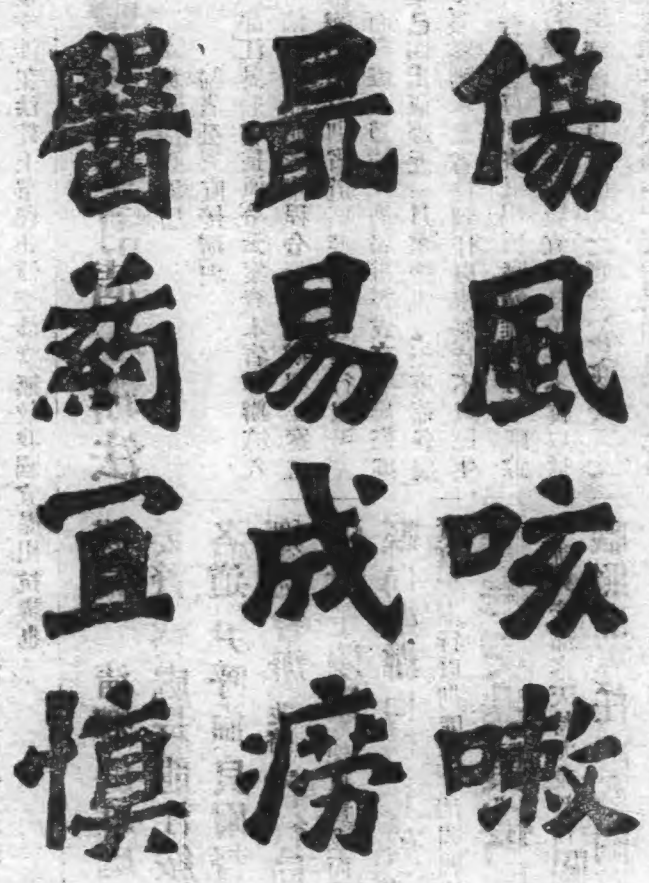 傷風咳嗽
最易成癆
醫葯宜慎